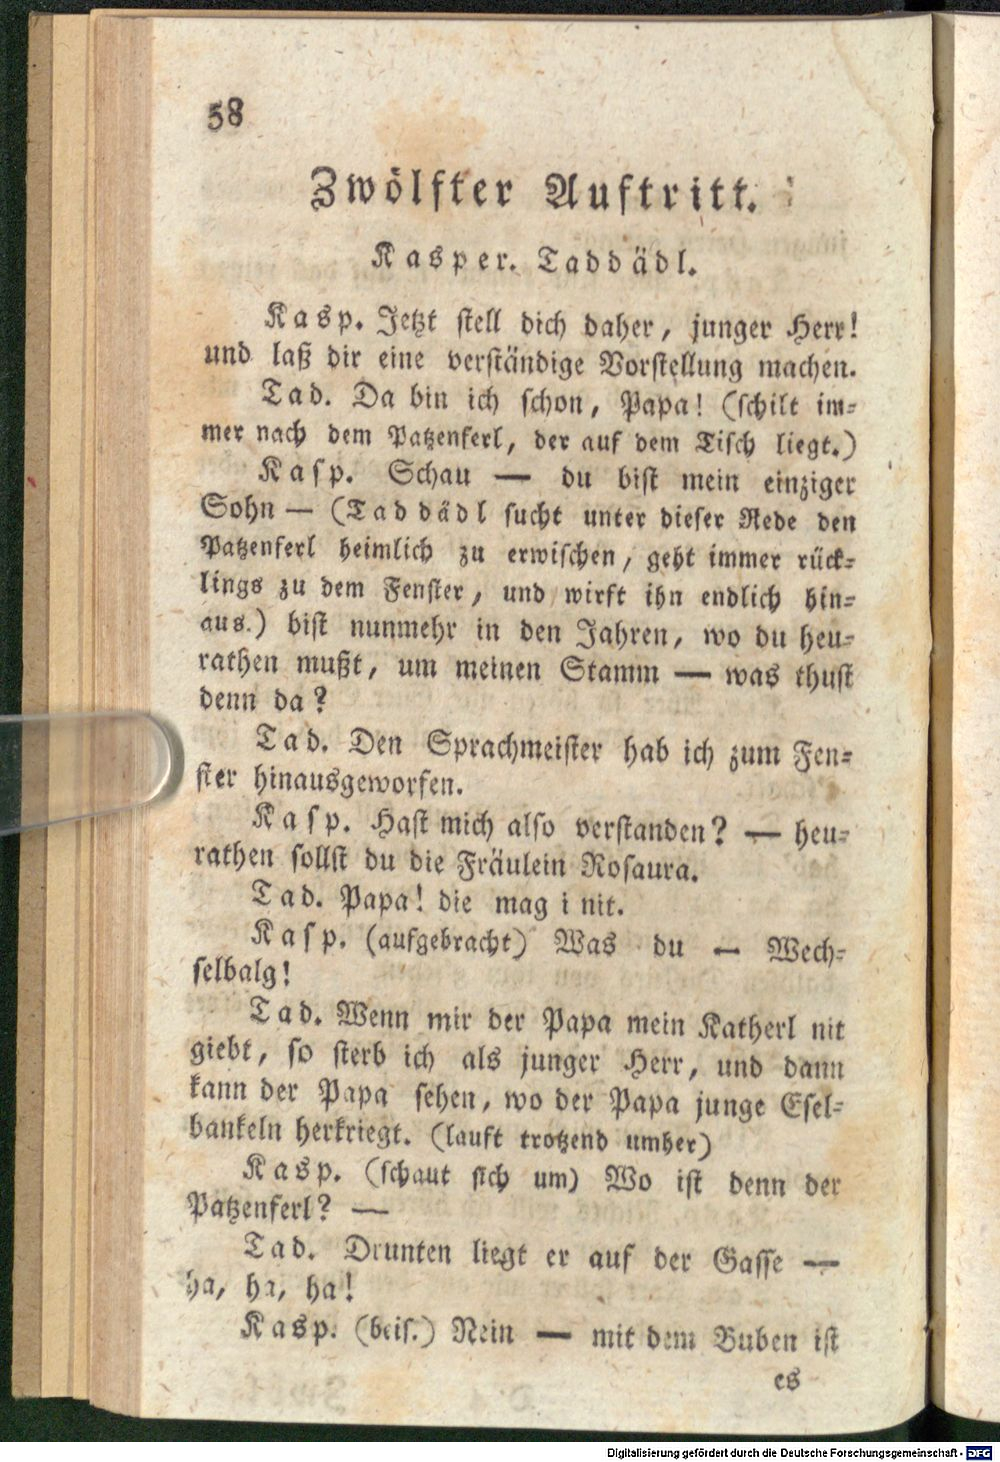 58
Zwölfter Auftritt.
Kasper. Taddädl.
Kasp. Jetzt stell dich daher, junger Herr!
und laß dir eine verständige Vorstellung machen.
Tad. Da bin ich schon, Papa! (schilt im-
mer nach dem Patzenferl, der auf dem Tisch liegt.)
Kasp. Schau — du bist mein einziger
Sohn — (Taddädl sucht unter dieser Rede den
Patzenferl heimlich zu erwischen, geht immer rück-
lings zu dem Fenster, und wirft ihn endlich hin-
aus.) bist nunmehr in den Jahren, wo du heu-
rathen mußt, um meinen Stamm — was thust
denn da?
Tad. Den Sprachmeister hab ich zum Fen-
ster hinausgeworfen.
Kasp. Hast mich also verstanden? — heu-
rathen sollst du die Fräulein Rosaura.
Tad. Papa! die mag i nit.
Kasp. (aufgebracht) Was du — Wech-
selbalg!
Tad. Wenn mir der Papa mein Katherl nit
giebt, so sterb ich als junger Herr, und dann
kann der Papa sehen, wo der Papa junge Esel-
bankeln herkriegt. (lauft trotzend umher)
Kasp. (schaut sich um) Wo ist denn der
Patzenferl? —
Tad. Drunten liegt er auf der Gasse —
ha, ha, ha!
Kasp. (beis.) Nein — mit dem Buben ist
es
Digitalisierung gefördert durch die Deutsche Forschungsgemeinschaft - DFG